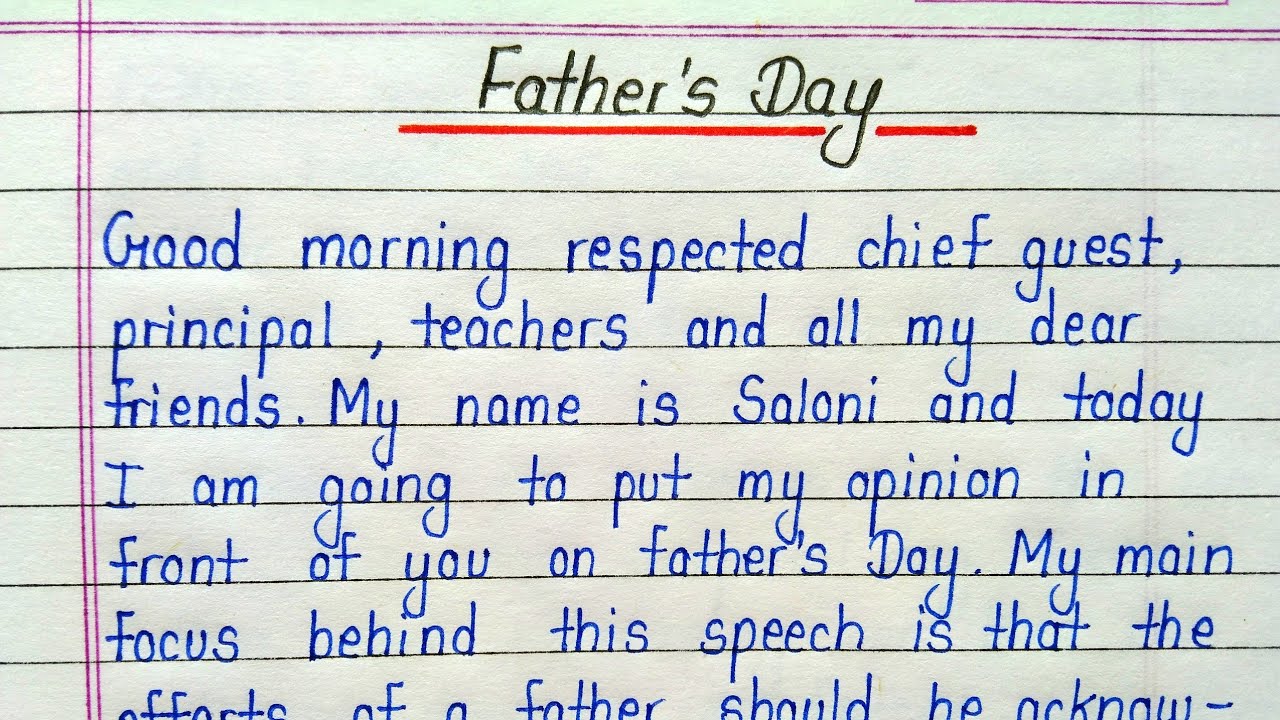 Father's Day
Good morning respected chief guest,
principal, teachers and all my dear
friends. My name is Saloni and today
I am going to put my opinion in
front of you on father's Day. My main
focus behind this speech is that the
efforts of a father should be acknow-